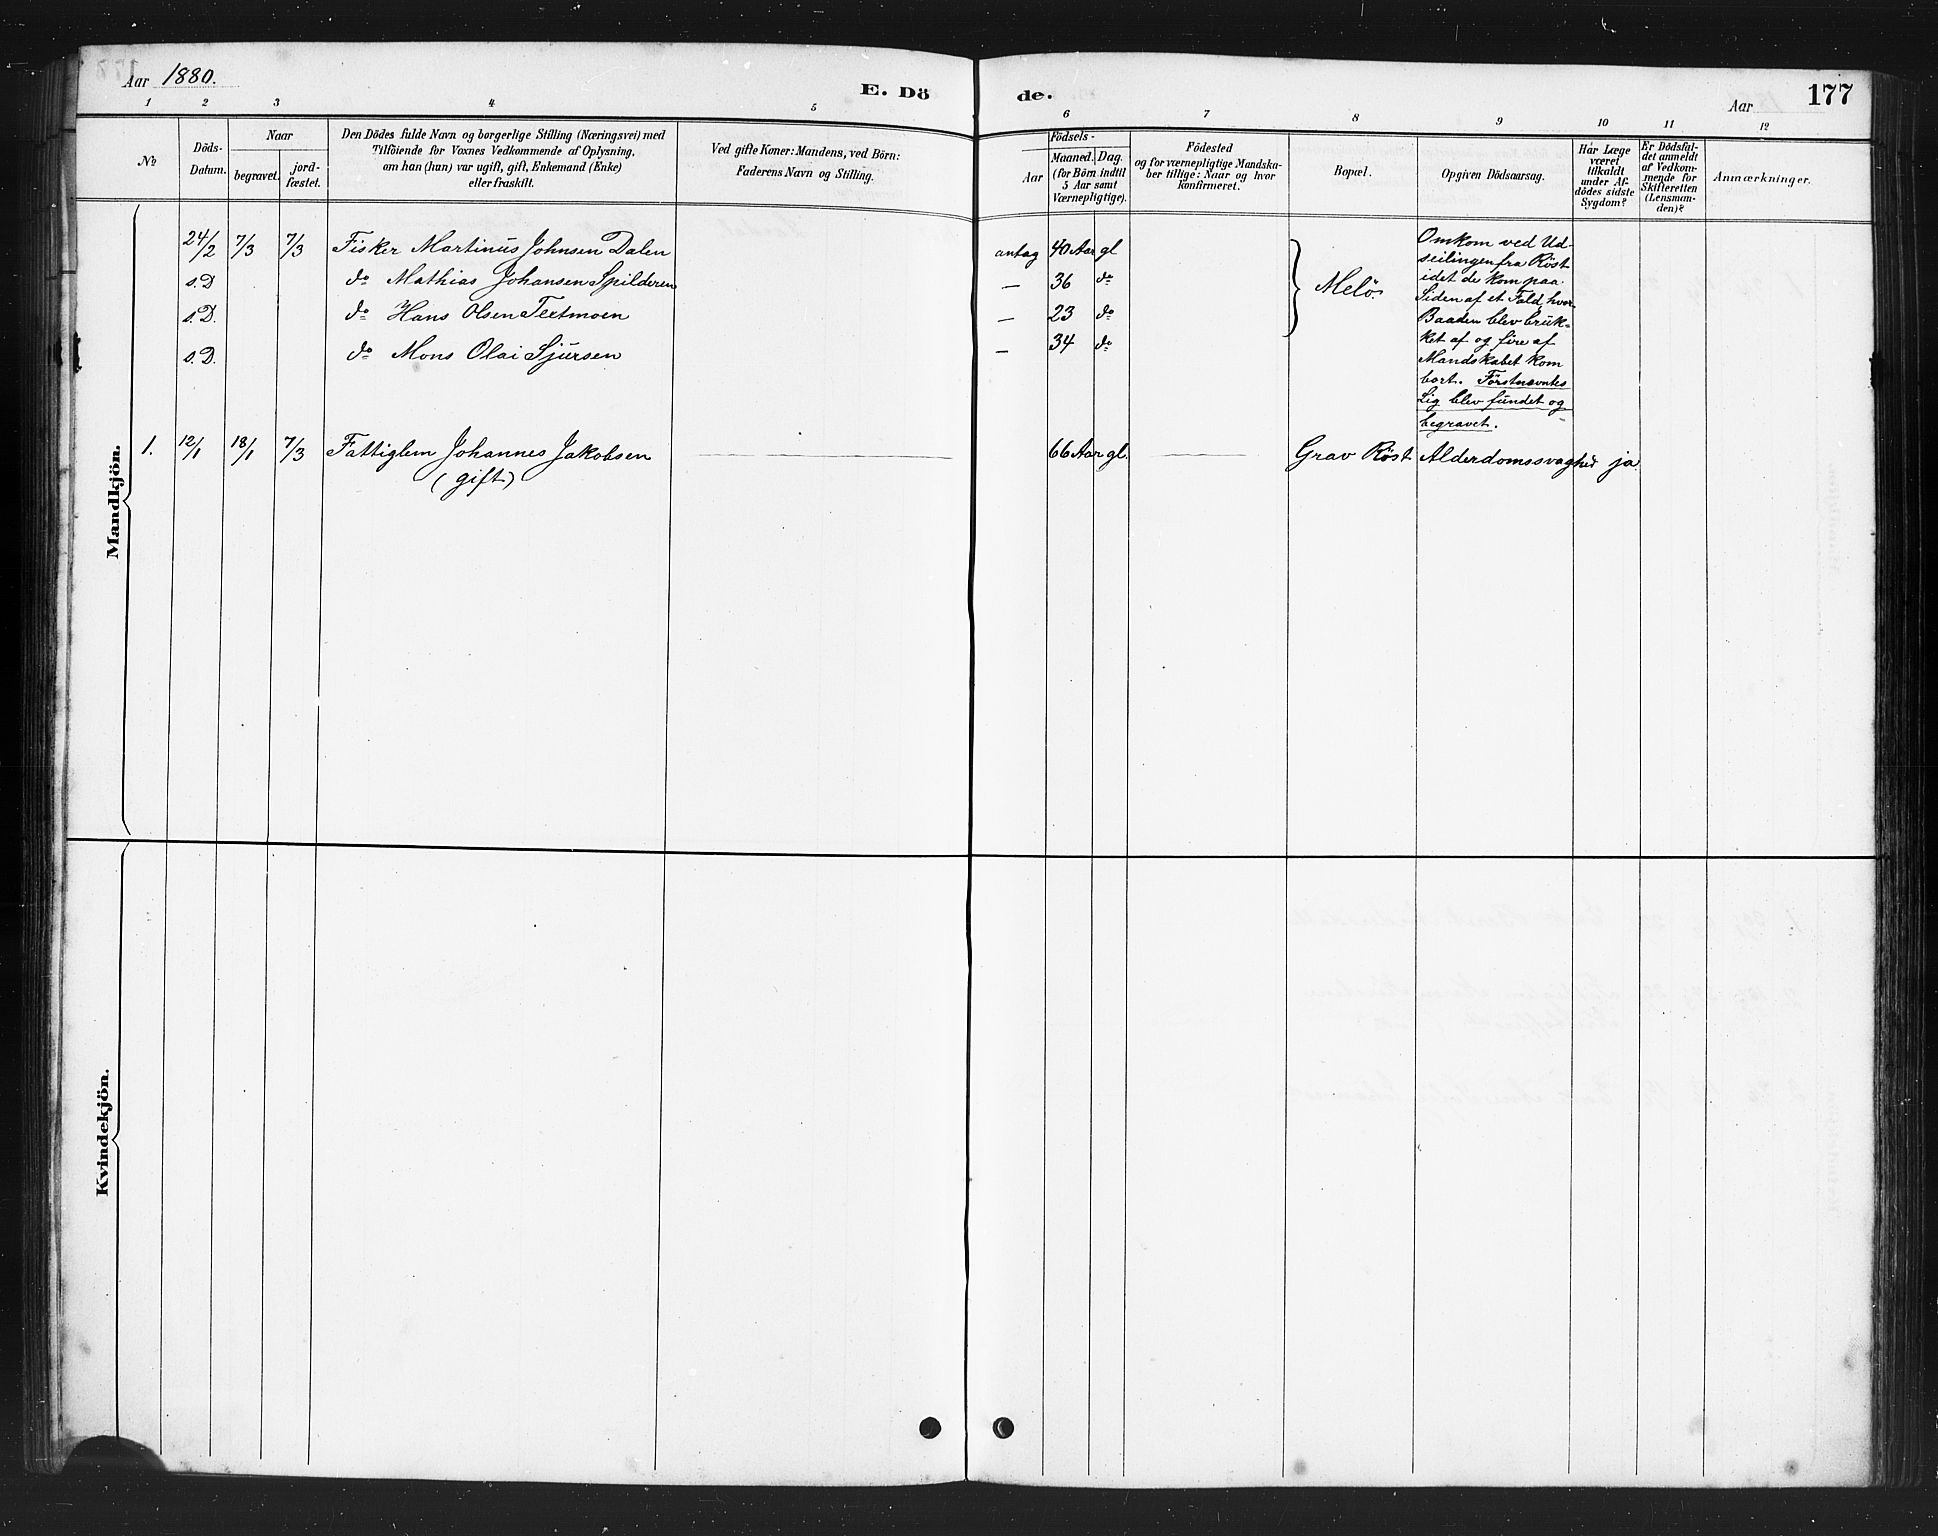 Aar 1880.
E. Dö
de.
Aar
177
1 2 3 4 5 6 7 8 9 10 11 12
№
Döds-
Datum.
Naar
begravet.
jord-
fæstet.
Den Dödes fulde Navn og borgerlige Stilling (Næringsvei) med
Tilföiende for Voxnes Vedkommende af Oplysning,
om han (hun) var ugift, gift, Enkemand (Enke)
eller fraskilt.
Ved gifte Koner: Mandens, ved Börn:
Faderens Navn og Stilling.
Födsels-
Aar
Maaned. Dag.
(for Börn indtil
5 Aar samt
Værnepligtige).
Födested
og for værnepligtige Mandska-
ber tillige: Naar og hvor
konfirmeret.
Bopæl.
Opgiven Dödsaarsag.
Har Læge
været
tilkaldt
under Af-
dödes sidste
Sygdom?
Er Dödsfal-
det anmeldt
af Vedkom-
mende for
Skifteretten
(Lensman-
den)?
Anmærkninger.
Mandkjön.
24/2 7/3 7/3 Fisker Martinus Johnsen Dalen antag 40 Aar gl
s.D. do Mathias Johansen Spilderen — 36 do
s.D. do Hans Olsen Textmoen — 23 do
s.D. do Mons Olai Sjursen — 34 do
Melö
Omkom ved Ud-
seilingen fra Röst
idet de kom paa
Siden af et Fald hvor
Baaden blev bruk-
ket af og fire af
Mandskabet kom
bort. Förstnævntes
Lig blev fundet og
begravet.
1. 12/1 18/1 7/3 Fattiglem Johannes Jakobsen 66 Aar gl. Grav Röst Alderdomssvaghed ja
(gift)
Kvindekjön.